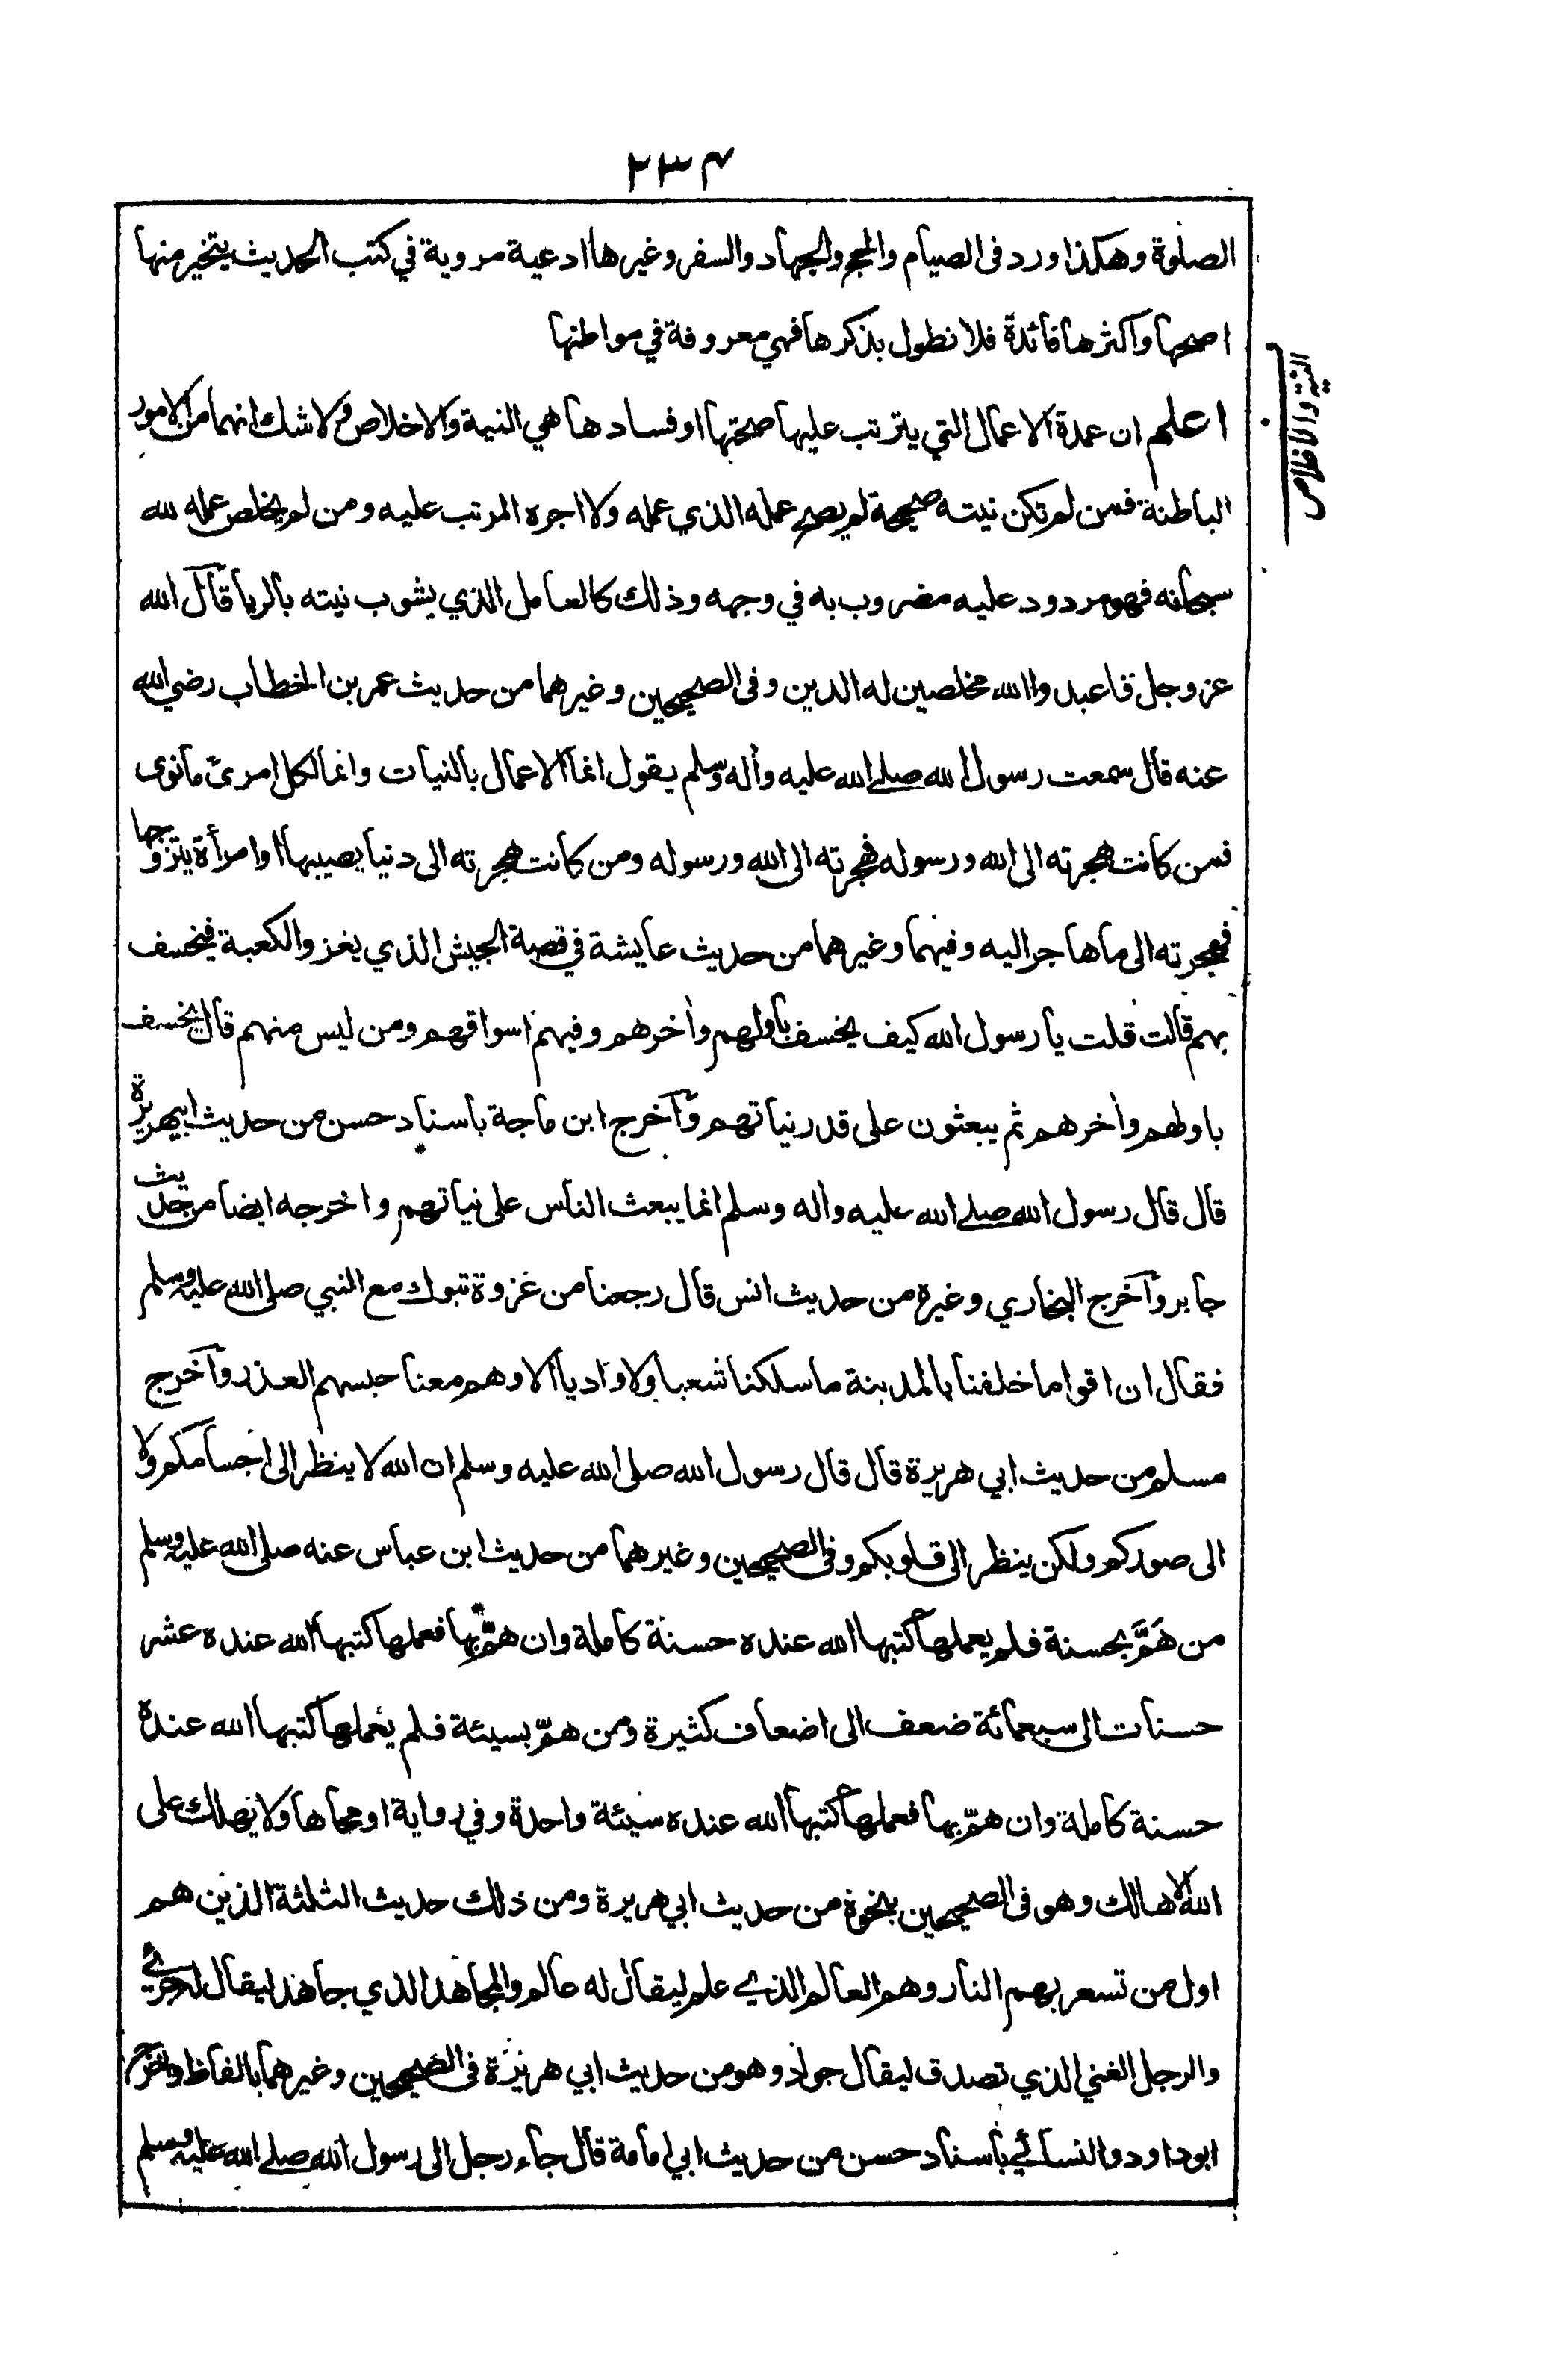 ٢٣٤
الصلوة وهكذا ورد فى الصيام والحج والجهاد والسفر وغيرها ادعية مروية في كتب الحديث يتخير منها
اصحها واكثرها فائدة فلا نطول بذكرها فهي معروفة في مواطنها
النية والاخلاص
اعلم ان عمدة الاعمال التي يترتب عليها صحتها او فسادها هي النية والاخلاص ولا شك انهما من الامور
الباطنة فمن لم تكن نيته صحيحة لم يصح عمله الذي عمله ولا اجره المرتب عليه ومن لم يخلص عمله لله
سبحانه فهو مردود عليه مضروب به في وجهه وذلك كالعامل الذي يشوب نيته بالريا قال الله
عز وجل فاعبدوا الله مخلصين له الدين وفى الصحيحين وغيرهما من حديث عمر بن الخطاب رضي الله
عنه قال سمعت رسول الله صلے الله عليه وأله وسلم يقول انما الاعمال بالنيات وانما لكل امرئ ما نوى
فمن كانت هجرته الى الله ورسوله فهجرته الى الله ورسوله ومن كانت هجرته الى دنيا يصيبها او امرأة يتزوجها
فهجرته الى ما هاجر اليه وفيهما وغيرهما من حديث عايشة في قصة الجيش الذي يغزو الكعبة فيخسف
بهم قالت قلت يا رسول الله كيف يخسف باولهم وأخرهم وفيهم اسواقهم ومن ليس منهم قال يخسف
باولهم وأخرهم ثم يبعثون على قدر نياتهم وآخرج ابن ماجة باسناد حسن من حديث ابيهريرة
قال قال رسول الله صلے الله عليه وأله وسلم انما يبعث الناس على نياتهم واخرجه ايضا من حديث
جابر وآخرج البخاري وغيره من حديث انس قال رجعنا من غزوة تبوك مع النبي صلى الله عليه وسلم
فقال ان اقواما خلفنا بالمدينة ما سلكنا شعبا ولا واديا الا وهم معنا حبسهم العذر وآخرج
مسلم من حديث ابي هريرة قال قال رسول الله صلى الله عليه وسلم ان الله لا ينظر الى اجسامكم ولا
الى صوركم ولكن ينظر الى قلوبكم وفى الصحيحين وغيرهما من حديث ابن عباس عنه صلى الله عليه وسلم
من هَمَّ بحسنة فلم يعملها كتبها الله عنده حسنة كاملة وان همَّ بها فعملها كتبها الله عنده عشر
حسنات الى سبعمائة ضعف الى اضعاف كثيرة ومن همّ بسيئة فلم يعملها كتبها الله عنده
حسنة كاملة وان همّ بها فعملها كتبها الله عنده سيئة واحدة وفي رواية او محاها ولا يهلك على
الله الا هالك وهو فى الصحيحين بنحوه من حديث ابي هريرة ومن ذلك حديث الثلثة الذين هم
اول من تسعر بهم النار وهم العالم الذي علم ليقال له عالم والمجاهد الذي جاهد ليقال له جرئ
والرجل الغني الذي تصدق ليقال جواد وهو من حديث ابي هريرة فى الصحيحين وغيرهما بالفاظ واخرج
ابو داود والنسائي باسناد حسن من حديث ابي امامة قال جاء رجل الى رسول الله صلے الله عليه وسلم